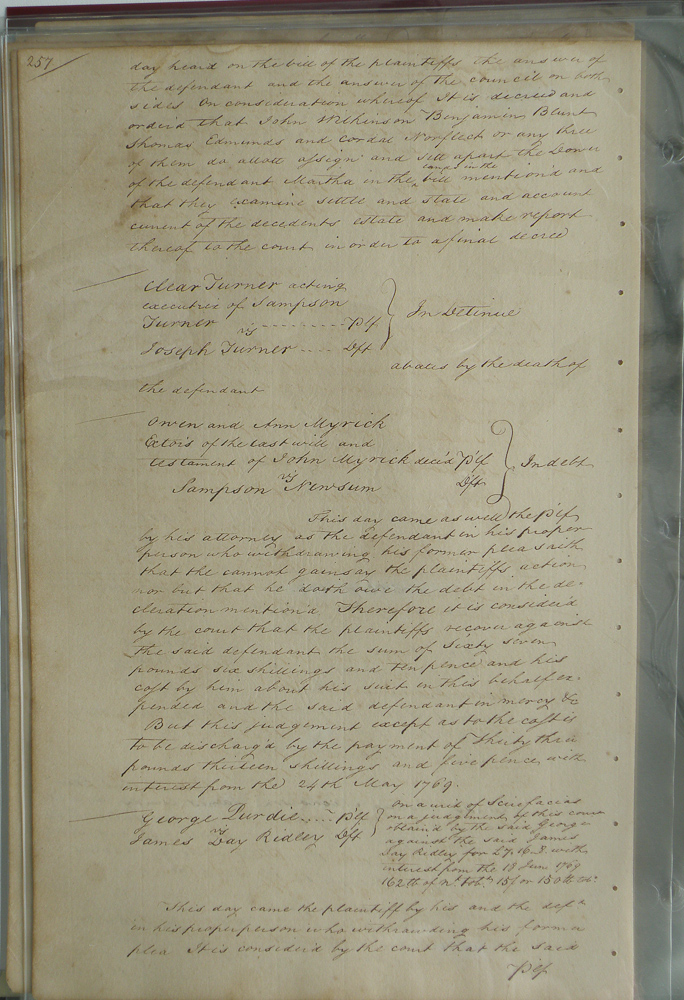 257
day heard on the bill of the plaintiffs the answer of
the defendant and the answer of the council on both
sides On consideration whereof It is decreed and
order'd that John Wilkinson Benjamin Blunt
Thomas Edmunds and Cordal Norfleet or any three
of them do allott assign and sett apart the Dower
of the defendant Martha in the bill mention'd and
that they examine settle and state and account
current of the decedents estate and make report
thereof to the court in order to a final decree
Clear Turner acting
executrix of Sampson
Turner Plf In Detinue
vs
Joseph Turner Dft
abates by the death of
the defendant
Owen and Ann Myrick
Extors of the last will and
testament of John Myrick decs'd Plf In debt
vs
Sampson Newsum Dft
This day came as well the Plf
by his attorney as the defendant in his proper
person who withdrawing his former plea saith
that he cannot gainsay the plaintiffs action
nor but that he doth owe the debt in the de-
cleration mention'd Therefore it is consider'd
by the court that the plaintiffs recover against
the said defendant the sum of Sixty seven
pounds six shillings and ten pence and his
cost by him about his suit in this behalf ex-
pended and the said defendant in mercy &c
But this judgement except as to the cost is
to be discharg'd by the payment of Thirty three
pounds thirteen shillings and five pence with
interest from the 24th May 1769.
George Purdie Plf
vs
James Day Ridley Dft
On a writ of Scirefacias
on a judgement by this court
obtain'd by the said George
against the said James
Day Ridley for with
interest from the 18 June 1769
162 lb of Tob. 15/ or 150 lb
This day came the plaintiff by his and the deft
in his proper person who withrawding his former
plea It is consider'd by the court that the said
Plf